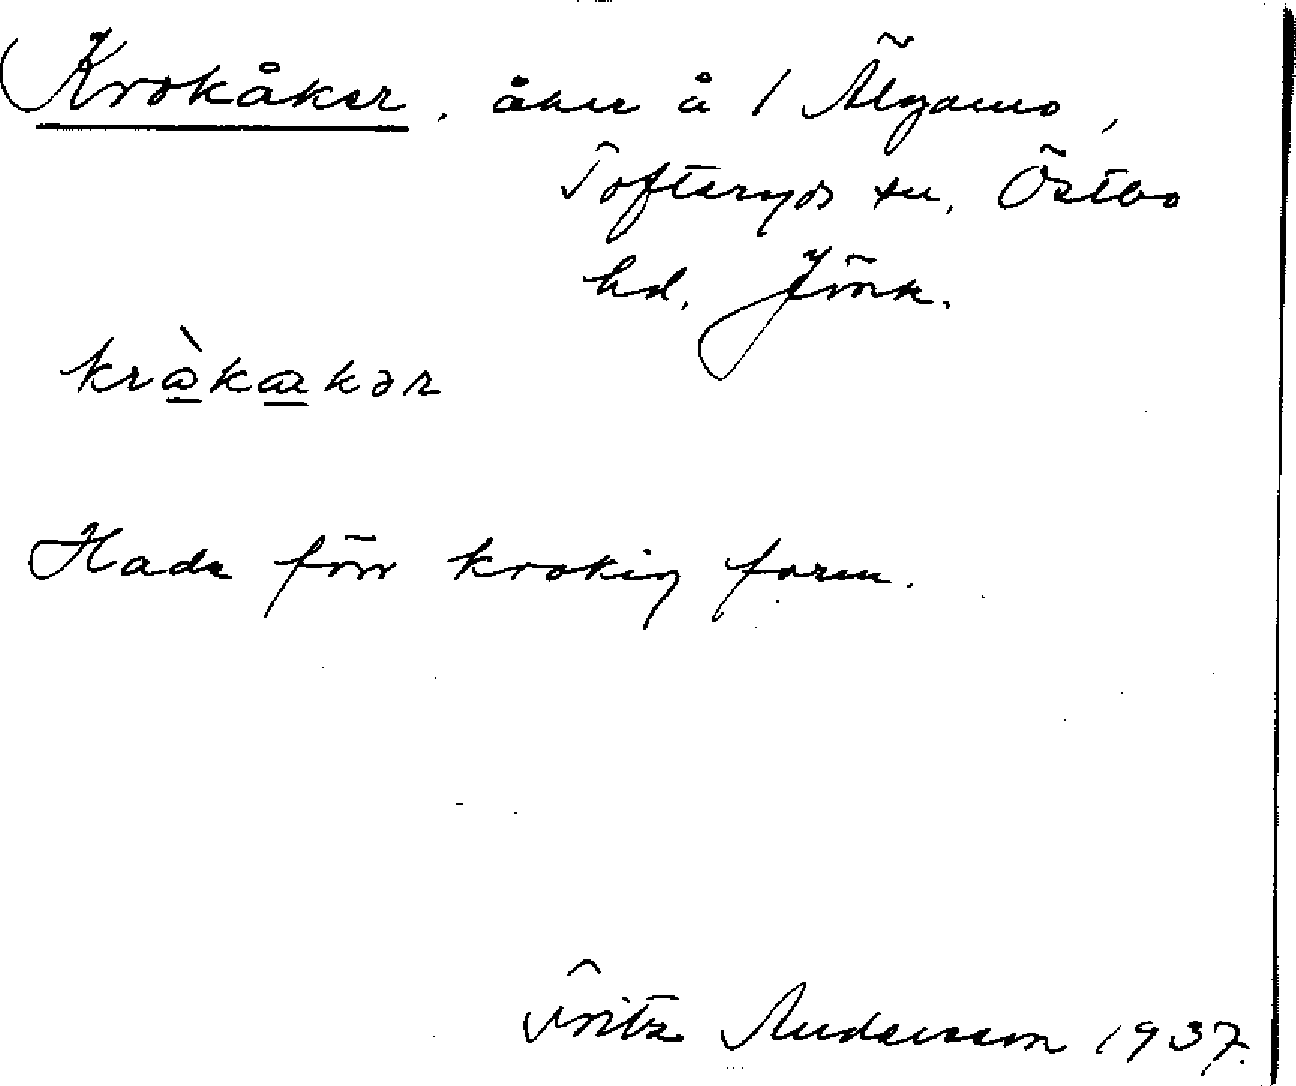 Krokåker, åker å 1 Älgamo,
Tofteryds sn, Östbo
hd, Jönk.
kràkakər
Hade förr krokig form.
Fritz Andersson 1937.